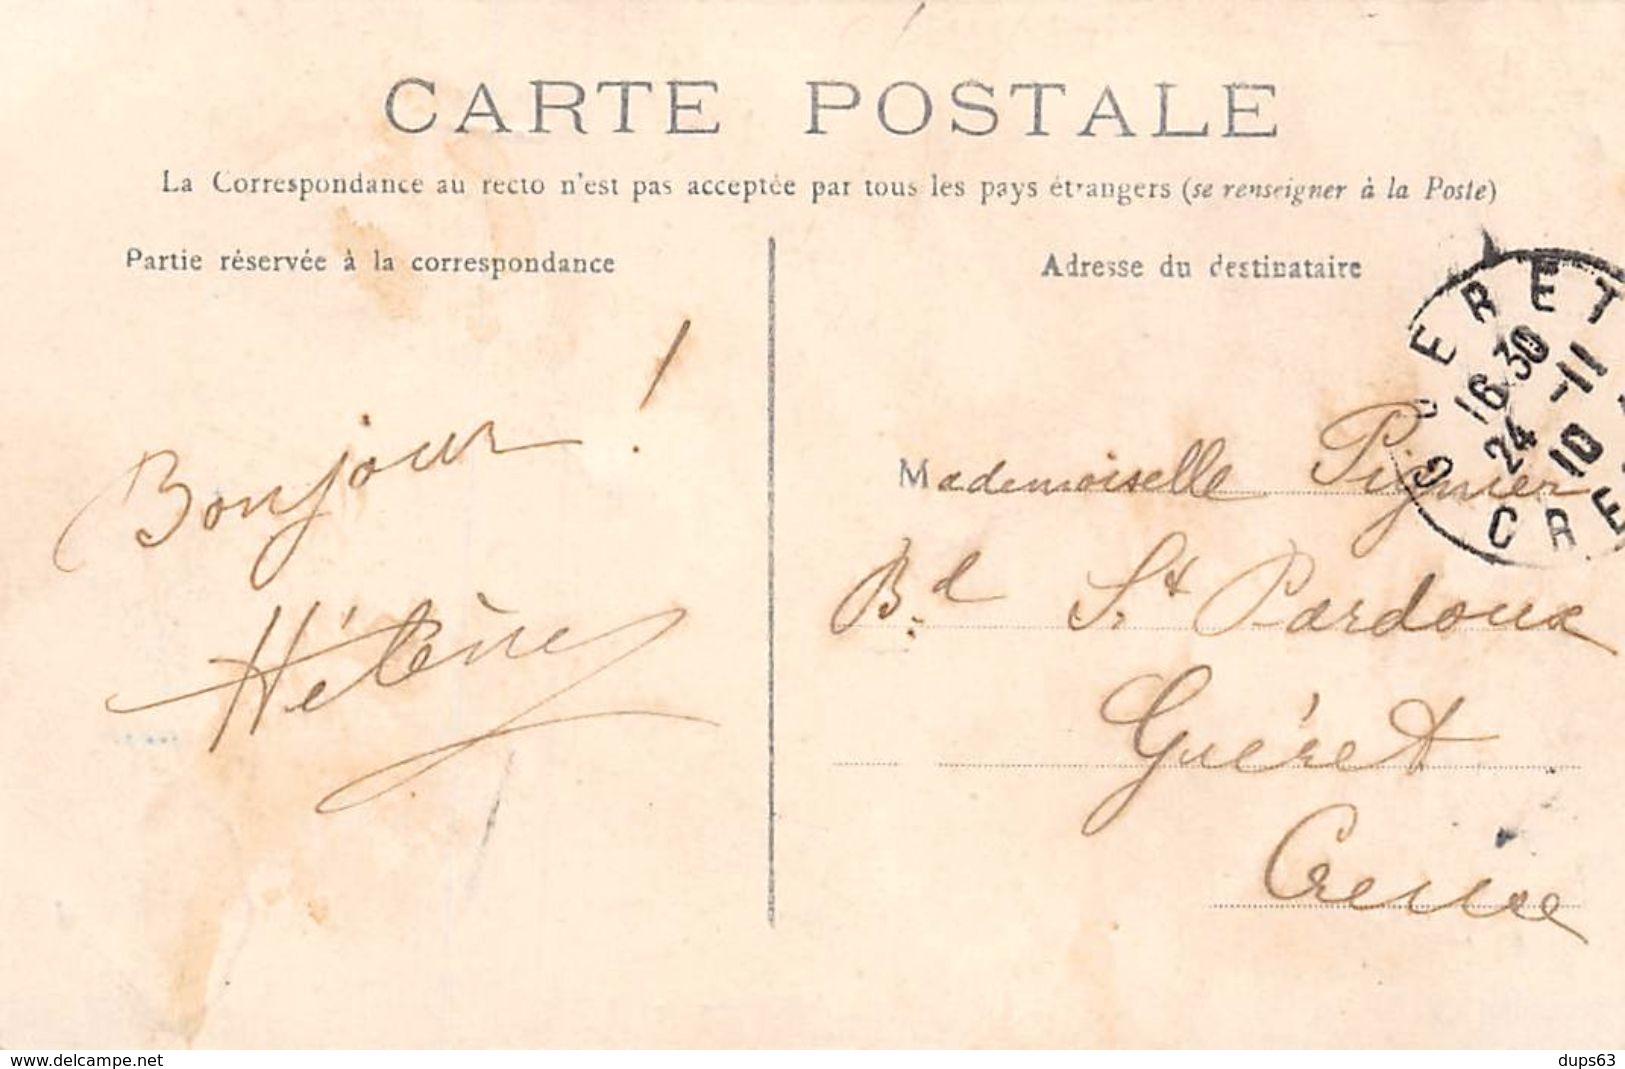 CARTE POSTALE
La Correspondance au recto n'est pas acceptée par tous les pays étrangers (se renseigner à la Poste)
Partie réservée à la correspondance
Bonjour !
Hélène
Adresse du destinataire
GUERET
16 30
24 -11
10
CRE
Mademoiselle Pignier
Bd St Pardoux
Guéret
Creuse
www.delcampe.net
dups63